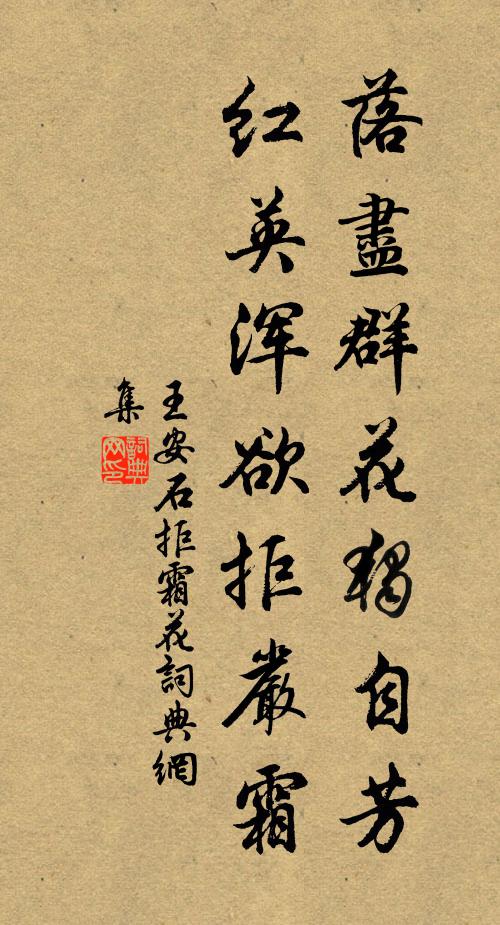 落盡群花獨自芳
紅英渾欲拒嚴霜
王安石拒霜花詞典網
集
詞典網印